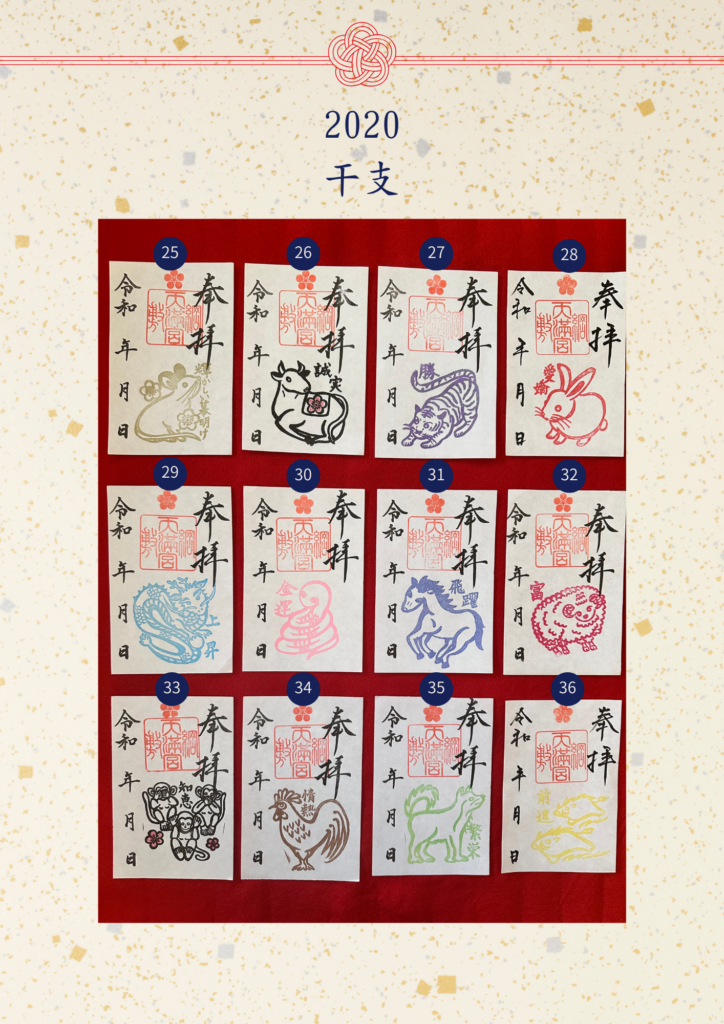 2020
干支
25
奉拝
綱敷天満宮
輝かしい幕明け
令和 年 月 日
26
奉拝
綱敷天満宮
誠実
令和 年 月 日
27
奉拝
綱敷天満宮
勝
令和 年 月 日
28
奉拝
綱敷天満宮
愛
令和 年 月 日
29
奉拝
綱敷天満宮
上昇
令和 年 月 日
30
奉拝
綱敷天満宮
金運
令和 年 月 日
31
奉拝
綱敷天満宮
飛躍
令和 年 月 日
32
奉拝
綱敷天満宮
富
令和 年 月 日
33
奉拝
綱敷天満宮
知恵
令和 年 月 日
34
奉拝
綱敷天満宮
情熱
令和 年 月 日
35
奉拝
綱敷天満宮
繁栄
令和 年 月 日
36
奉拝
綱敷天満宮
令和 年 月 日